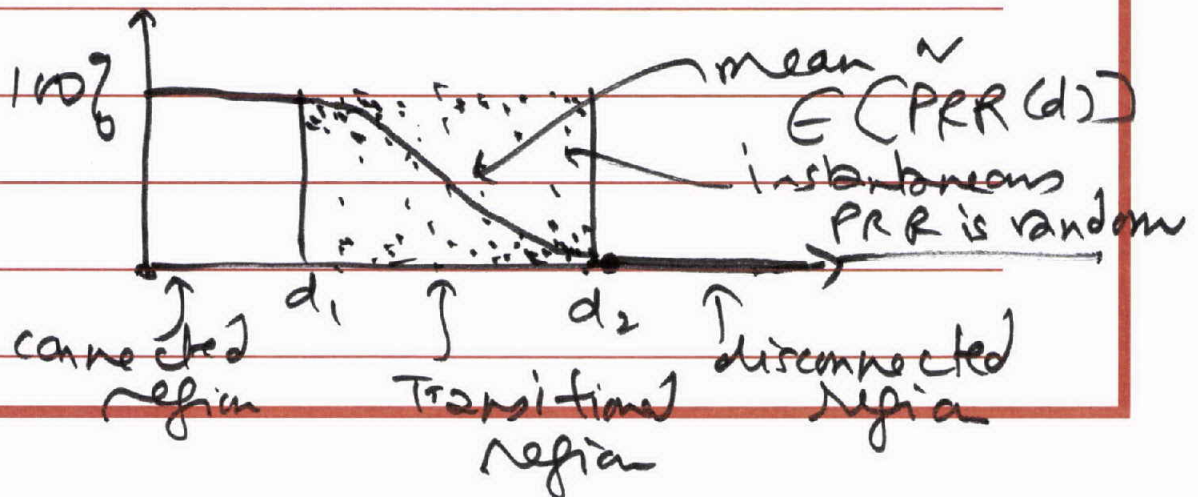 100%
mean ~
E(PRR(d))
instantaneous
PRR is random
d1
d2
connected
region
Transitional
region
disconnected
region